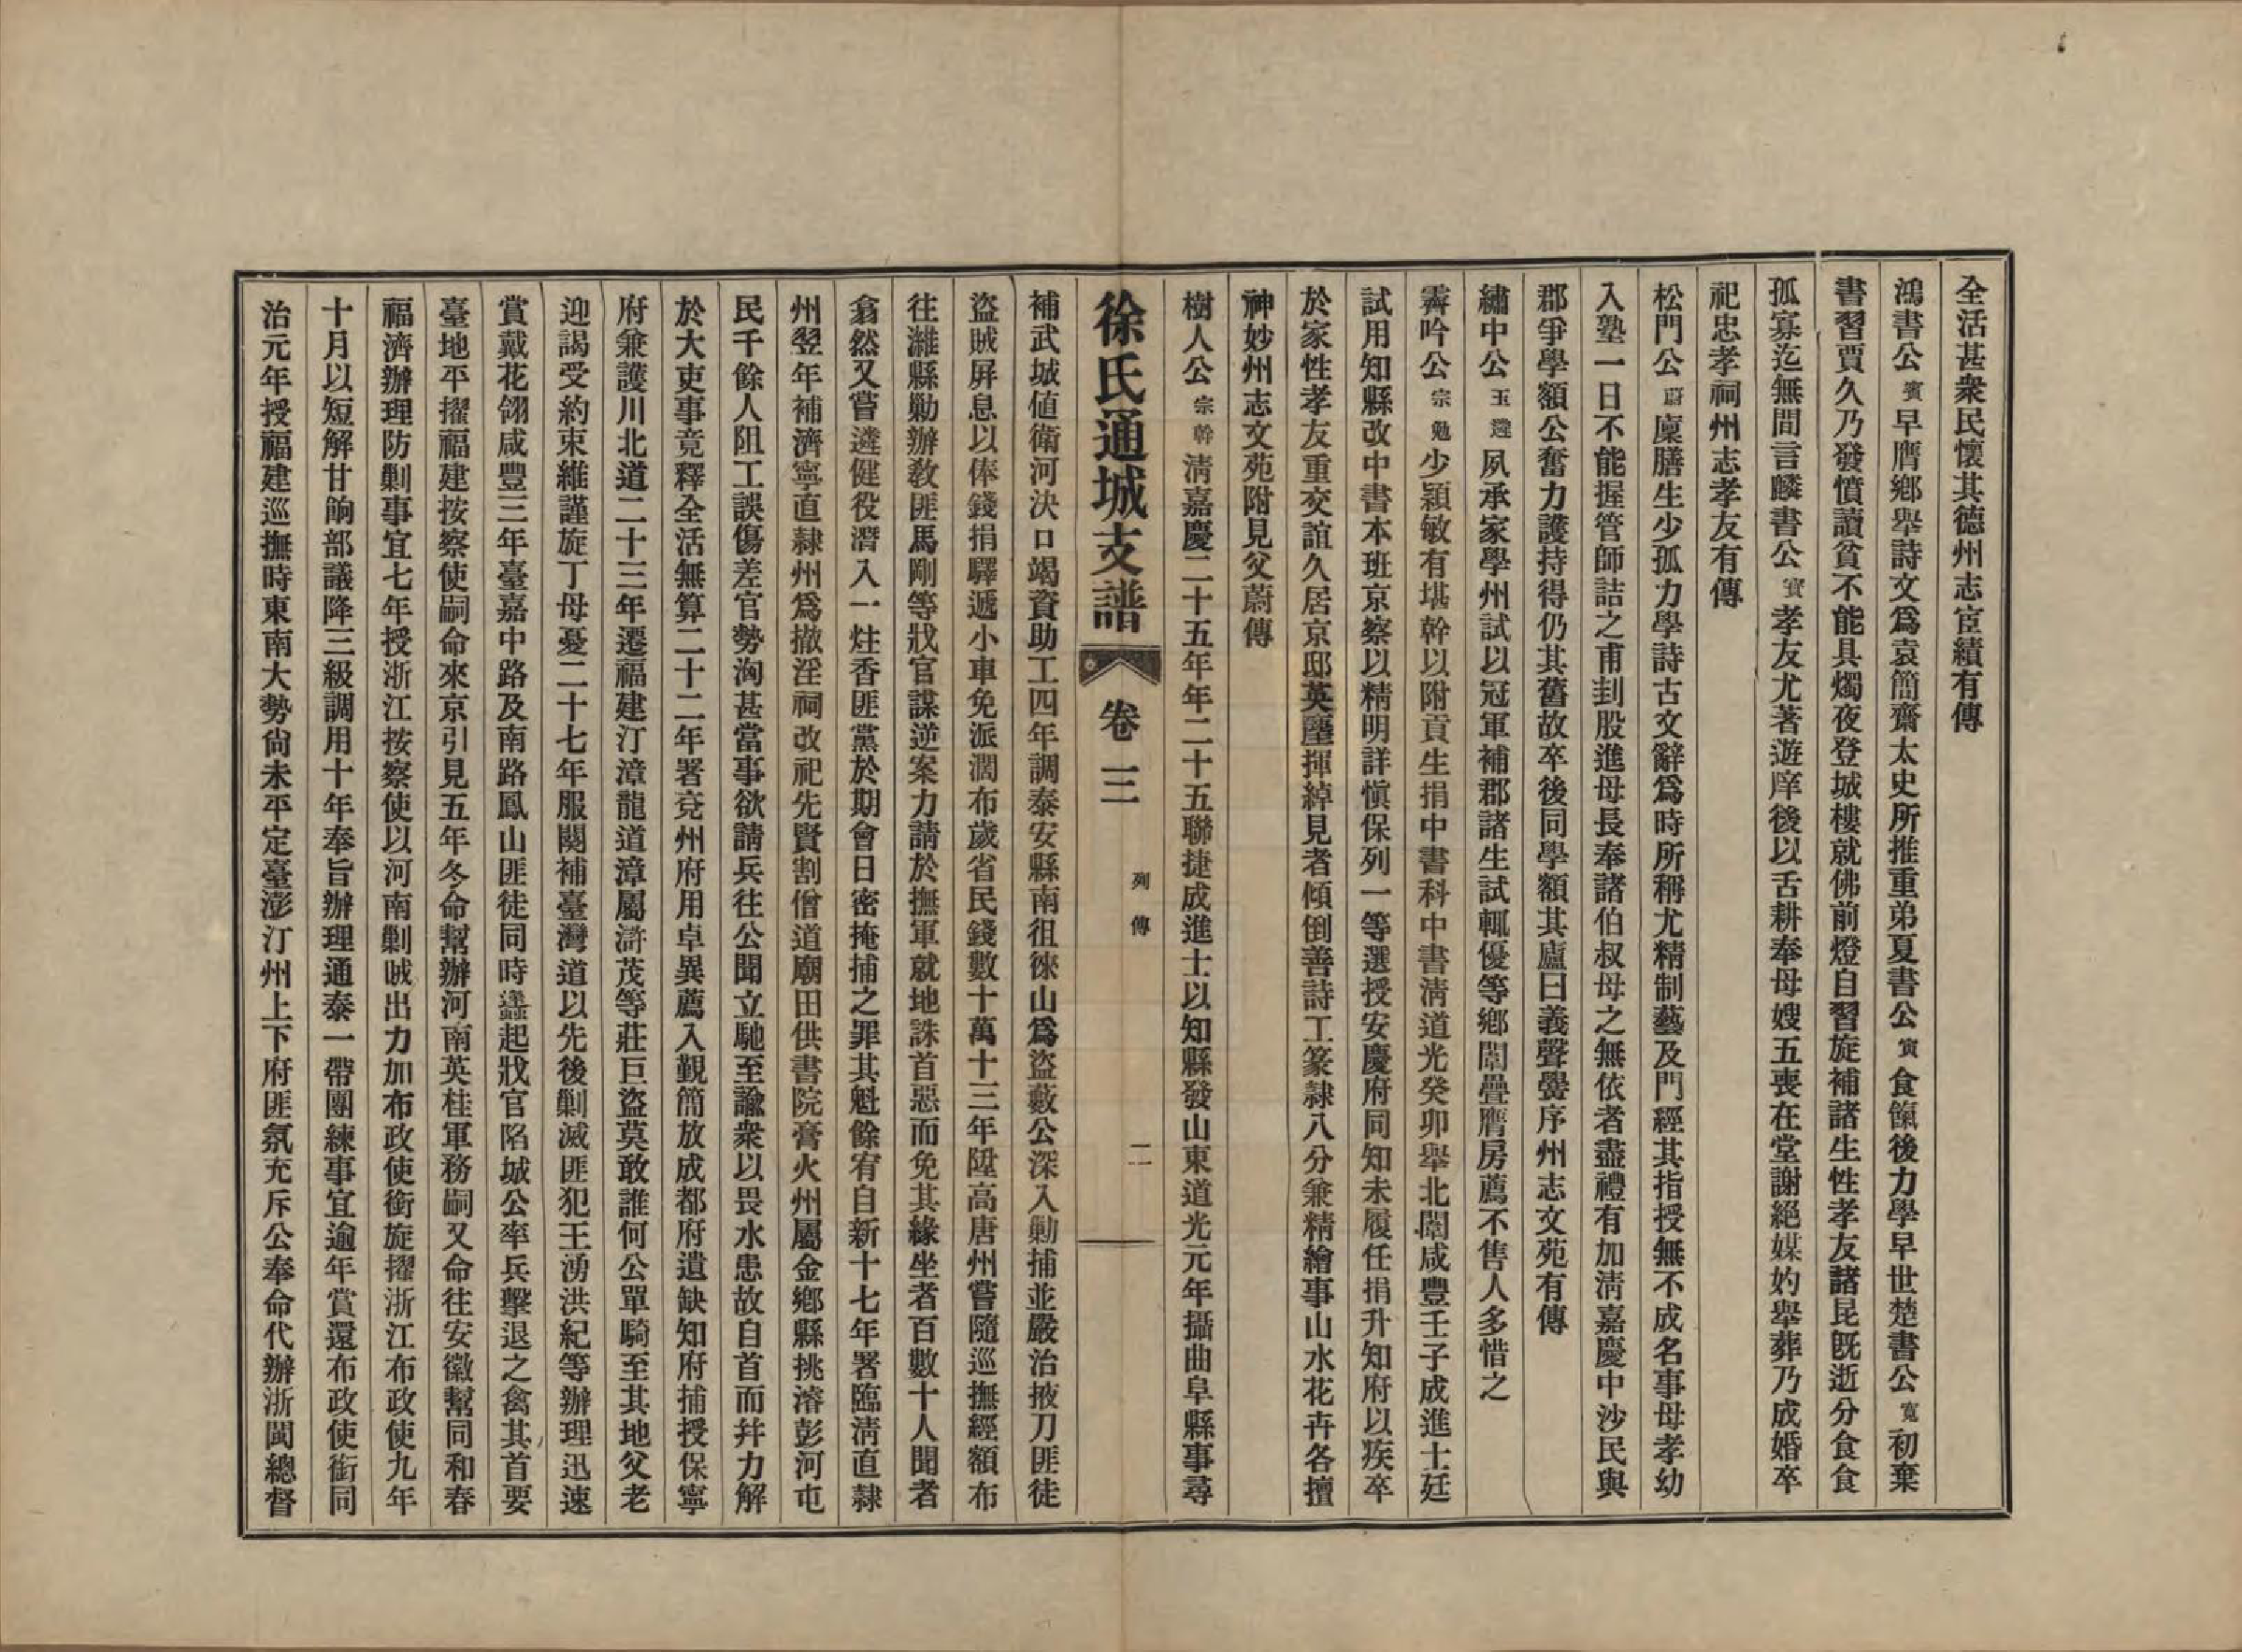 全活甚衆民懷其德州志宦績有傳
鴻書公賓早膺鄉舉詩文爲袁簡齋太史所推重弟夏書公寅食餼後力學早世楚書公寬初棄
書習賈久乃發憤讀貧不能具燭夜登城樓就佛前燈自習旋補諸生性孝友諸昆旣逝分食食
孤寡迄無間言麟書公實孝友尤著遊庠後以舌耕奉母嫂五喪在堂謝絕媒妁舉葬乃成婚卒
祀忠孝祠州志孝友有傳
松門公蔚廩膳生少孤力學詩古文辭爲時所稱尤精制藝及門經其指授無不成名事母孝幼
入塾一日不能握管師詰之甫刲股進母長奉諸伯叔母之無依者盡禮有加淸嘉慶中沙民與
郡爭學額公奮力護持得仍其舊故卒後同學額其廬曰義聲黌序州志文苑有傳
繡中公玉蓮夙承家學州試以冠軍補郡諸生試輒優等鄉闈疊膺房薦不售人多惜之
霽吟公宗勉少穎敏有堪幹以附貢生捐中書科中書淸道光癸卯舉北闈咸豐壬子成進士廷
試用知縣改中書本班京察以精明詳愼保列一等選授安慶府同知未履任捐升知府以疾卒
於家性孝友重交誼久居京邸英塵揮綽見者傾倒善詩工篆隸八分兼精繪事山水花卉各擅
神妙州志文苑附見父蔚傳
樹人公宗幹淸嘉慶二十五年年二十五聯捷成進士以知縣發山東道光元年攝曲阜縣事尋
徐氏通城支譜 卷三 列傳 二
補武城値衛河決口竭資助工四年調泰安縣南徂徠山爲盜藪公深入勦捕並嚴治掖刀匪徒
盜賊屏息以俸錢捐驛遞小車免派濶布歲省民錢數十萬十三年陞高唐州嘗隨巡撫經額布
往濰縣勦辦敎匪馬剛等戕官謀逆案力請於撫軍就地誅首惡而免其緣坐者百數十人聞者
翕然又嘗遴健役潛入一炷香匪黨於期會日密掩捕之罪其魁餘宥自新十七年署臨淸直隸
州翌年補濟寧直隸州爲撤淫祠改祀先賢割僧道廟田供書院膏火州屬金鄉縣挑濬彭河屯
民千餘人阻工誤傷差官勢洶甚當事欲請兵往公聞立馳至諭衆以畏水患故自首而幷力解
於大吏事竟釋全活無算二十二年署兗州府用卓異薦入覲簡放成都府遺缺知府捕授保寧
府兼護川北道二十三年遷福建汀漳龍道漳屬滸茂等莊巨盜莫敢誰何公單騎至其地父老
迎謁受約束維謹旋丁母憂二十七年服闋補臺灣道以先後剿滅匪犯王湧洪紀等辦理迅速
賞戴花翎咸豐三年臺嘉中路及南路鳳山匪徒同時蠭起戕官陷城公率兵擊退之禽其首要
臺地平擢福建按察使嗣命來京引見五年冬命幫辦河南英桂軍務嗣又命往安徽幫同和春
福濟辦理防剿事宜七年授浙江按察使以河南剿賊出力加布政使銜旋擢浙江布政使九年
十月以短解甘餉部議降三級調用十年奉旨辦理通泰一帶團練事宜逾年賞還布政使銜同
治元年授福建巡撫時東南大勢尙未平定臺澎汀州上下府匪氛充斥公奉命代辦浙閩總督